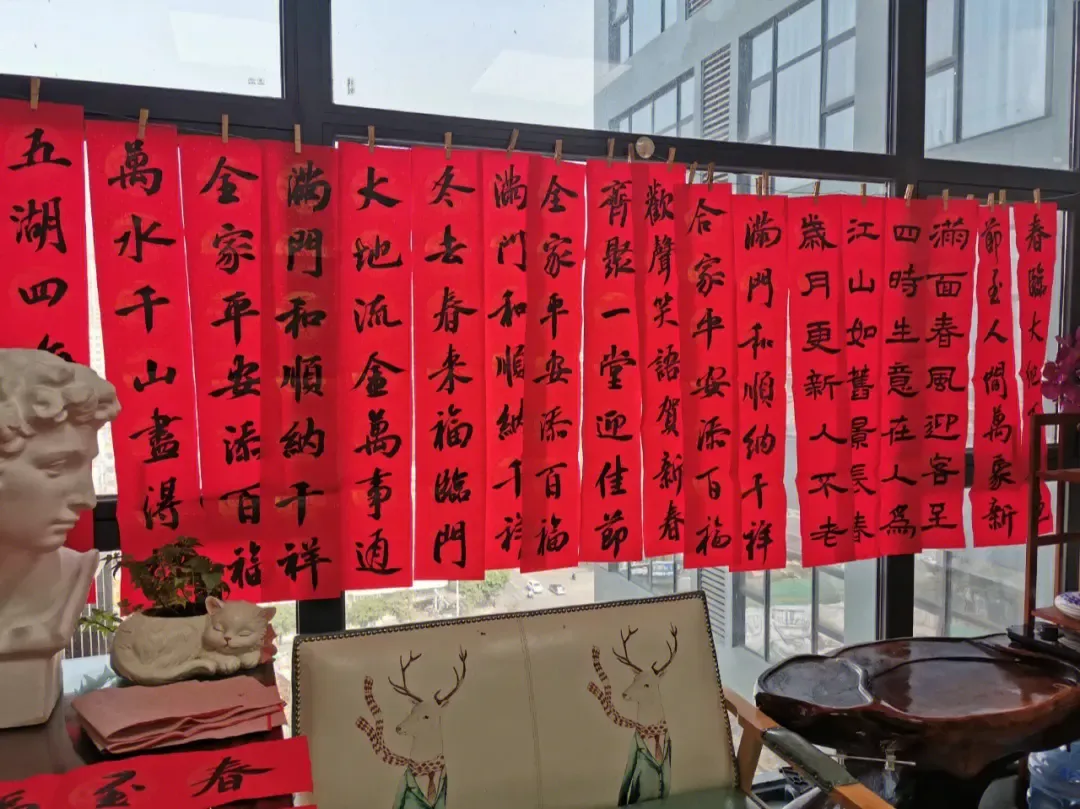 春臨大地
節至人間萬象新
滿面春風迎客至
四時生意在人為
江山如舊景長春
歲月更新人不老
滿門和順納千祥
合家平安添百福
歡聲笑語賀新春
齊聚一堂迎佳節
全家平安添百福
滿門和順納千祥
冬去春來福臨門
大地流金萬事通
滿門和順納千祥
全家平安添百福
萬水千山盡得
五湖四海
春至